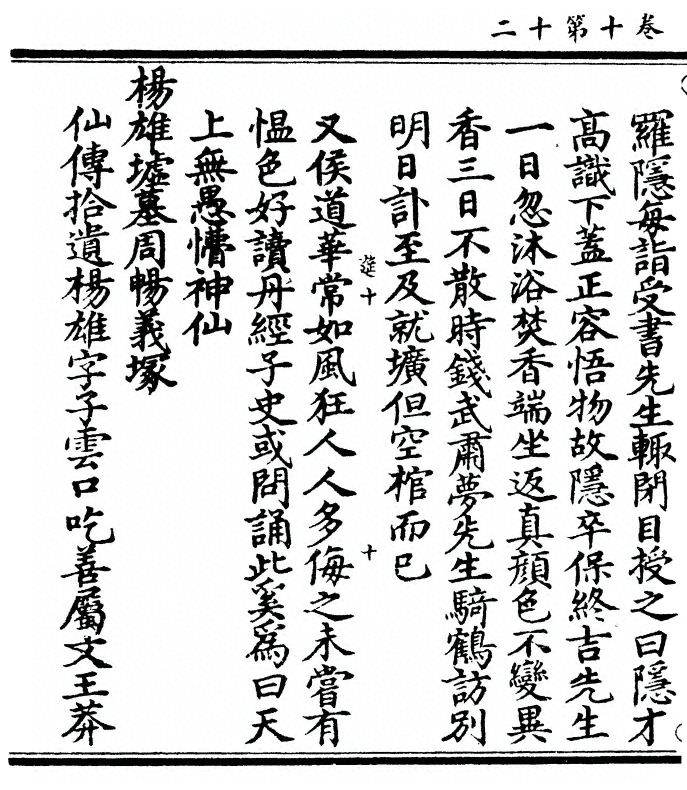 卷十第十二
羅隱每詣受書先生輙閉目授之曰隱才
高識下蓋正容悟物故隱卒保終吉先生
一日忽沐浴焚香端坐返真顔色不變異
香三日不散時錢武肅夢先生騎鶴訪別
明日訃至及就壙但空棺而已
又侯道華常如風狂人人多侮之未嘗有
愠色好讀丹經子史或問誦此奚爲曰天
上無愚懵神仙
楊雄墟墓周暢義塚
仙傳拾遺楊雄字子雲口吃善屬文王莽